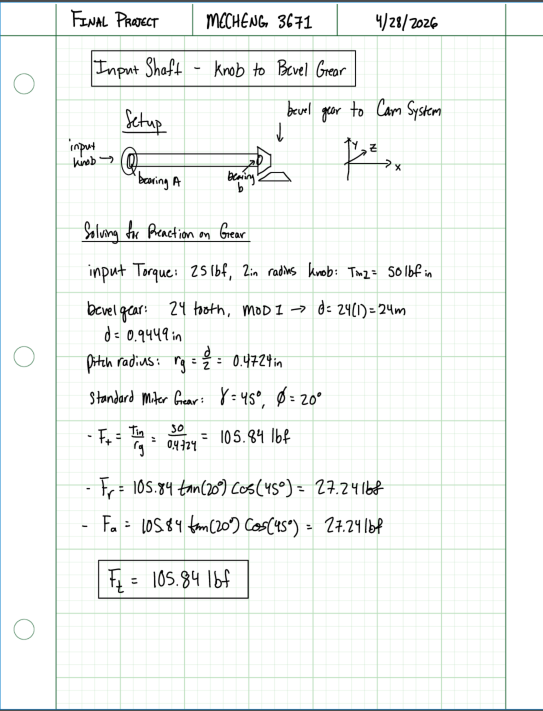 FINAL PROJECT
MECHENG 3671
4/28/2026
Input Shaft - Knob to Bevel Gear
Setup
bevel gear to Cam System
input knob →
bearing A
bearing b
Y
Z
X
Solving for Reaction on Gear
input Torque: 25 lbf, 2in radius knob: Tin2 = 50 lbf in
bevel gear: 24 tooth, MOD 1 → d = 24(1) = 24m
d = 0.9449 in
Pitch radius: rg = d/2 = 0.4724 in
Standard Miter Gear: γ = 45°, ϕ = 20°
- Ft = Tin/rg = 50/0.4724 = 105.84 lbf
- Fr = 105.84 tan(20°) Cos(45°) = 27.24 lbf
- Fa = 105.84 tan(20°) Cos(45°) = 27.24 lbf
Ft = 105.84 lbf